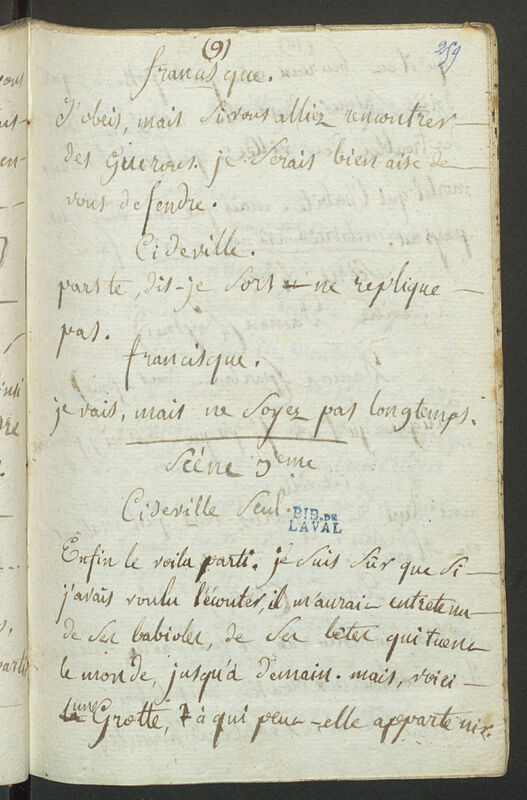 (9)
259
francisque.
J'obeis, mais si vous alliez rencontrer
des Guerous. je serais bien aise de
vous defendre.
Cideville.
pars te, dis-je sors ne replique
pas.
francisque.
je vais, mais ne soyez pas longtemps.
Scène 3eme
Cideville seul.
BIB. DE
LAVAL
Enfin le voila parti. je suis sûr que si
j'avais voulu l'écouter, il m'aurait entretenu
de ses babioles, de ses bêtes qui tuent
le monde, jusqu'à demain. mais, voici
une Grotte, à qui peut-elle appartenir.